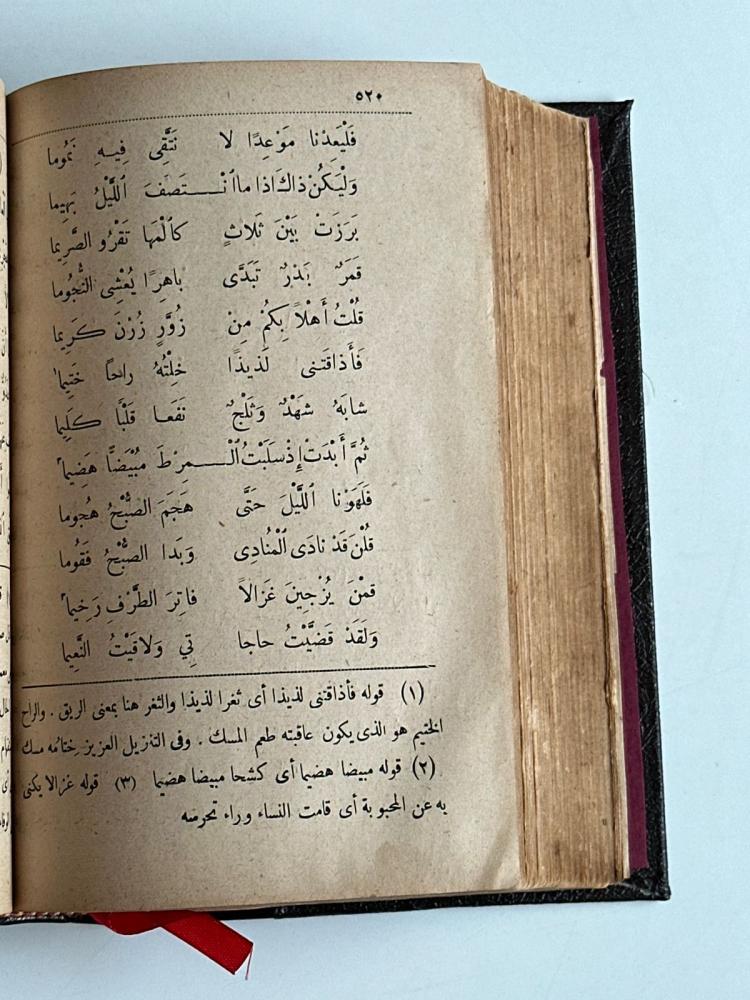 ٥٢٠
فَلْيَعِدْنا مَوْعِدًا لا نَتَّقِى فِيهِ نَمُوما
وَلْيَكُنْ ذاكَ اذا ما ٱنْـتَصَفَ ٱللَّيْلُ بَهِيما
بَرَزَتْ بَيْنَ ثَلاثٍ كٱلْمَهَا تَقْرُو الصَّرِيما
قَمَرٌ بَدْرٌ تَبَدَّى باهِرًا يُعْشِى النُّجُوما
قُلْتُ أَهْلاً بِكُمُ مِنْ زُوَّرٍ زُرْنَ كَرِيما
فَأَذاقَتْنى لَذيذًا خِلْتُهُ راحًا خَتِيما
شابَهُ شَهْدٌ وَثَلْجٌ نَفَعا قَلْبًا كَلِيما
ثُمَّ أَبْدَتْ إِذْ سَلَبْتُ الْـمِرْطَ مُبْيَضًّا هَضِيما
فَلَهَوْنا ٱللَّيْلَ حَتَّى هَجَمَ الصُّبْحُ هُجُوما
قُلْنَ قَدْ نادَى ٱلْمُنادِى وَبَدا الصُّبْحُ فَقُوما
قُمْنَ يُزْجِينَ غَزالاً فاتِرَ الطَّرْفِ رَخِيما
وَلَقَدْ قَضَّيْتُ حاجا تِي وَلاقَيْتُ النَّعِيما
(١) قوله فأذاقتنى لذيذا أى ثغرا لذيذا والثغر هنا بمعنى الريق . والراح
الختيم هو الذى يكون عاقبته طعم المسك . وفى التنزيل العزيز ختامه مسك
(٢) قوله مبيضا هضيما أى كشحا مبيضا هضيما (٣) قوله غزالا يكنى
به عن المحبوبة أى قامت النساء وراء تحرسه